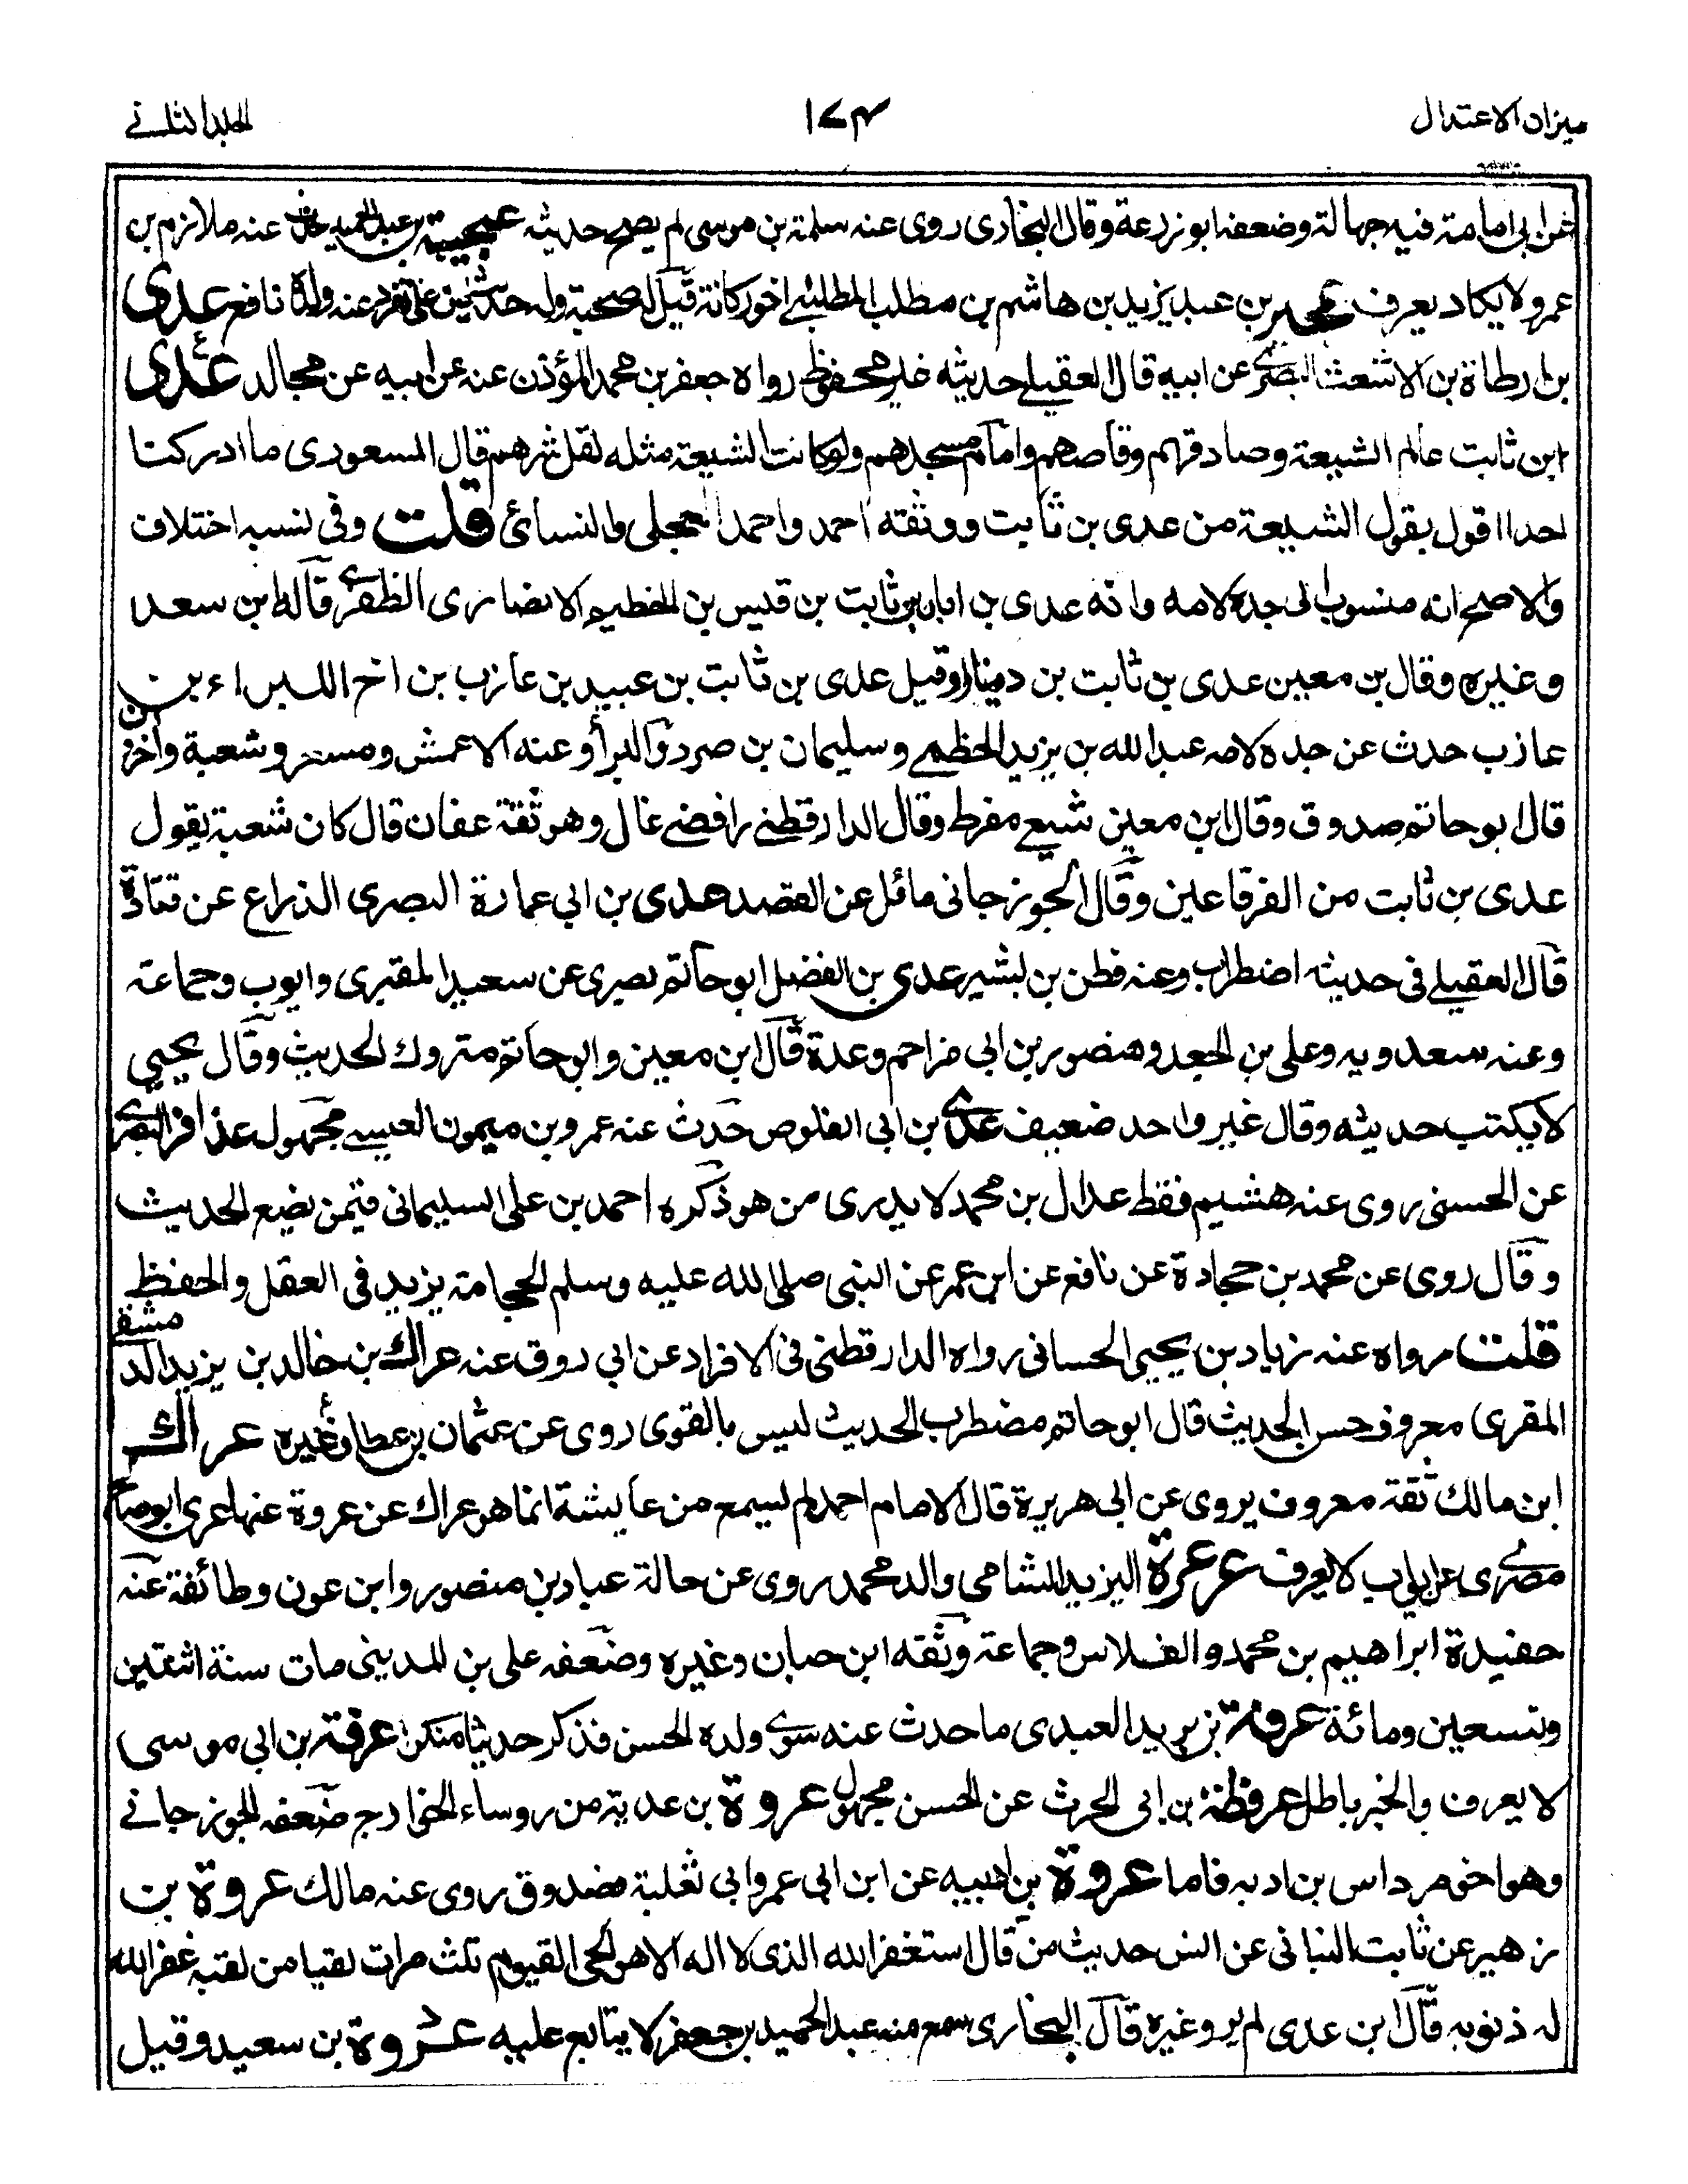 ميزان الاعتدال
١٧٤
الجلد الثاني
عن ابي امامة فيه جهالة وضعفه ابو زرعة وقال البخاري روى عنه سلمة بن موسى لم يصح حديثه عجيبة بن عبد الحميد عنه ملازم بن
عمرو لا يكاد يعرف عجير بن عبد يزيد بن هاشم بن مطلب المطلبي اخو ركانة قيل له صحبة وله حديث عنه ولده نافع عدى
بن ارطاة بن الاشعث البصري عن ابيه قال العقيلي حديثه غير محفوظ رواه جعفر بن محمد المؤذن عنه عن ابيه عن مجالد عدى
ابن ثابت عالم الشيعة وصادقهم وقاصهم وامام مسجدهم ولو كانت الشيعة مثله لقل شرهم قال المسعودى ما ادركنا
احدا اقول بقول الشيعة من عدى بن ثابت ووثقه احمد واحمد العجلى والنسائى قلت وفى نسبه اختلاف
والاصح انه منسوب الى جده لامه وانه عدى بن ابان بن ثابت بن قيس بن الخطيم الانصارى الظفرى قاله ابن سعد
وغيره وقال بن معين عدى بن ثابت بن دينار وقيل عدى بن ثابت بن عبيد بن عازب بن اخ البراء بن
عازب حدث عن جده لامه عبد الله بن يزيد الخطمي وسليمان بن صرد والبرأ وعنه الاعمش ومسعر وشعبة واخرون
قال ابو حاتم صدوق وقال ابن معين شيعي مفرط وقال الدارقطني رافضي غال وهو ثقة عفان قال كان شعبة يقول
عدى بن ثابت من الفرقاعين وقال الجوزجانى مائل عن القصد عدى بن ابي عمارة البصرى الذراع عن قتادة
قال العقيلي فى حديثه اضطراب وعنه قطن بن بشير عدى بن الفضل ابو حاتم بصرى عن سعيد المقبرى وايوب وجماعة
وعنه سعدويه وعلى بن الجعد ومنصور بن ابى مزاحم وعدة قال ابن معين وابو حاتم متروك الحديث وقال يحيى
لا يكتب حديثه وقال غير واحد ضعيف عدى بن ابى القلوص حدث عنه عمرو بن ميمون العبسي مجهول عذافر البصرى
عن الحسن روى عنه هشيم فقط عذال بن محمد لا يدرى من هو ذكره احمد بن على السليمانى فيمن يضع الحديث
وقال روى عن محمد بن حجادة عن نافع عن ابن عمر عن النبى صلى الله عليه وسلم الحجامة يزيد فى العقل والحفظ
قلت رواه عنه زياد بن يحيى الحسانى رواه الدارقطنى فى الافراد عن ابى روق عنه عراك بن خالد بن يزيد الدمشقي
المقرى معروف حسن الحديث قال ابو حاتم مضطرب الحديث ليس بالقوى روى عن عثمان بن عطاء وغيره عراك
ابن مالك ثقة معروف يروى عن ابى هريرة قال الامام احمد لم يسمع من عايشة انما هو عراك عن عروة عنها عرى ابو صالح
مصرى عن ايوب لا يعرف عرعرة اليزيد الشامى والد محمد روى عن خالة عباد بن منصور وابن عون وطائفة عنه
حفيدة ابراهيم بن محمد والفلاس وجماعة وثقه ابن حبان وغيره وضعفه على بن المدينى مات سنة اثنتين
وتسعين ومائة عرفة بن يريد العبدى ما حدث عنه سوى ولده الحسن فذكر حديثا منكرا عرفة بن ابى موسى
لا يعرف والخبر باطل عرفطة بن ابى الحرث عن الحسن مجهول عروة بن عدية من روساء الخوارج ضعفه الجوزجانى
وهو اخو مرداس بن ادية فاما عروة بن اذينه عن ابن ابى عمرو ابى ثعلبة فصدوق روى عنه مالك عروة بن
زهير عن ثابت البنانى عن انس حديث من قال استغفر الله الذى لا اله الا هو الحى القيوم ثلث مرات لقيا من لقبه غفر الله
له ذنوبه قال ابن عدى لم يرو غيره قال البخارى سمع منه عبد الحميد بن جعفر لا يتابع عليه عروة بن سعيد وقيل